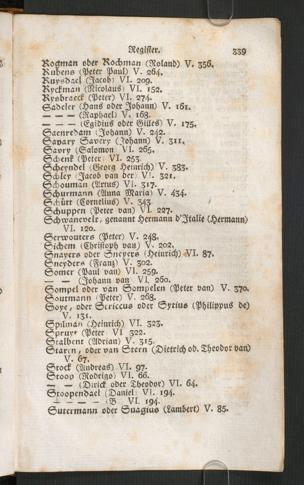 Register. 339
Rogman oder Rochman (Roland) V. 356.
Rubens (Peter Paul) V. 264.
Ruysdael (Jacob) VI. 209.
Ryckman (Nicolaus) VI. 152.
Rysbraeck (Peter) VI. 274.
Sadeler (Hans oder Johann) V. 161.
— — — (Raphael) V. 168.
— — — (Egidius oder Gilles) V. 175.
Saenredam (Johann) V. 242.
Savary Savery (Johann) V. 311.
Savry (Salomon) VI. 265.
Schenk (Peter) VI. 253
Scheyndel (Georg Heinrich) V. 383.
Schley (Jacob van der) VI. 321.
Schouman (Artus) VI. 317.
Schurmann (Anna Maria) V. 434.
Schütt (Cornelius) V. 343
Schuppen (Peter van) VI. 227.
Schwanevelt, genannt Hermann d'Italie (Hermann)
VI. 120.
Serwouters (Peter) V. 248.
Sichem (Christoph van) V. 202.
Snayers oder Sneyers (Heinrich) VI. 87.
Sneyders (Franz) V. 302.
Somer (Paul van) VI. 259.
— — (Johann van) VI. 260.
Sompel oder van Sompelen (Peter van) V. 370.
Soutmann (Peter) V. 268.
Soye, oder Sericcus oder Sytius (Philippus de)
V. 131.
Spilman (Heinrich) VI. 323.
Spruyt (Peter VI 322.
Stalbent (Adrian) V. 315.
Staren, oder van Stern (Dietrich od. Theodor van)
V. 67.
Stock (Andreas) VI. 97.
Stoop (Rodrigo) VI. 66.
— — (Dirick oder Theodor) VI. 64.
Stoopendael (Daniel) VI. 194.
— — — — (B VI. 194.
Sutermann oder Suavius (Lambert) V. 85.